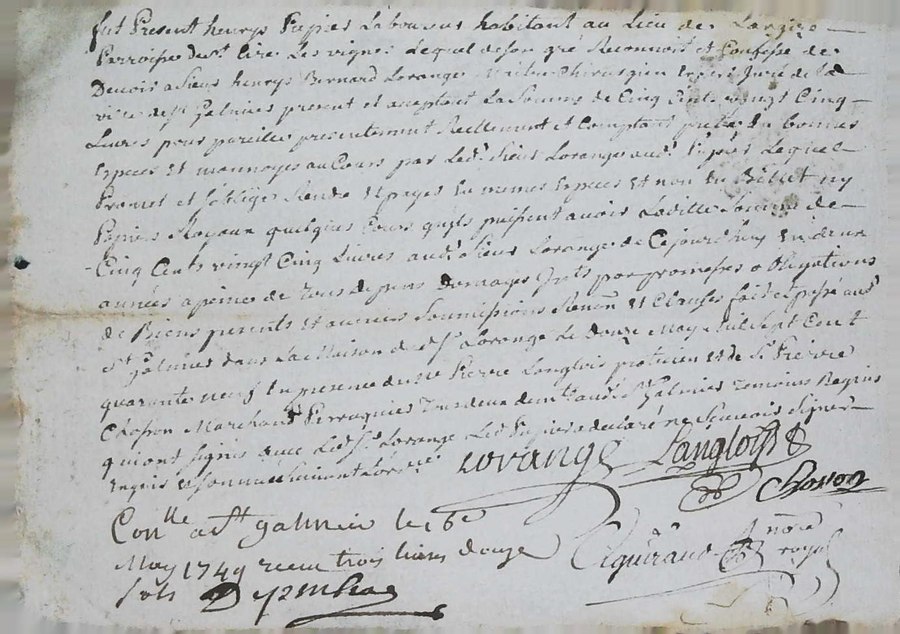 fut Present henrys Papier Laboureur habitant au Lieu de
Parroisse de st Cire Les vignes Lequel de son gré Reconnoit et Confesse de
Devoir a Sieur henrys Bernard Lorange Maitre Chirurgien juré de la
ville de st Galmier present et aceptant La Somme de Cinq Cents vingt Cinq
Livres pour pareille presentement Reellement et Comptant en bonnes
Especes et monnoyes au Cours par Led. Sieur Lorange aud. Papier Lequel
Promet et soblige Rendre et payer En memes Especes et non En Billet ny
Papiers Royaux quelques Cours quils puissent avoir Ladite Somme de
Cinq Cents vingt Cinq Livres aud. Sieur Lorange de Cejourdhuy en deux
années a peine de tous depens domages par promesses Obligations
de Biens Soumissions Renon et Clauses fait et passé aud.
St Galmier dans La Maison dud. Sr Lorange Le douze May Mil Sept Cent
quarante neuf En presence de Pierre Langlois praticien et de Sr Pierre
Chosson Marchand Perruquier Tous deux dud. St Galmier Temoins Requis
qui ont signés avec Led. Sr Lorange Led. Papier a declaré ne Scavoir Signer
Enquis et Sommé
Lorange Langlois
Chosson
Con.lle a St galmier le 16e
May 1749 receu trois livres douze
sols
nore
royal